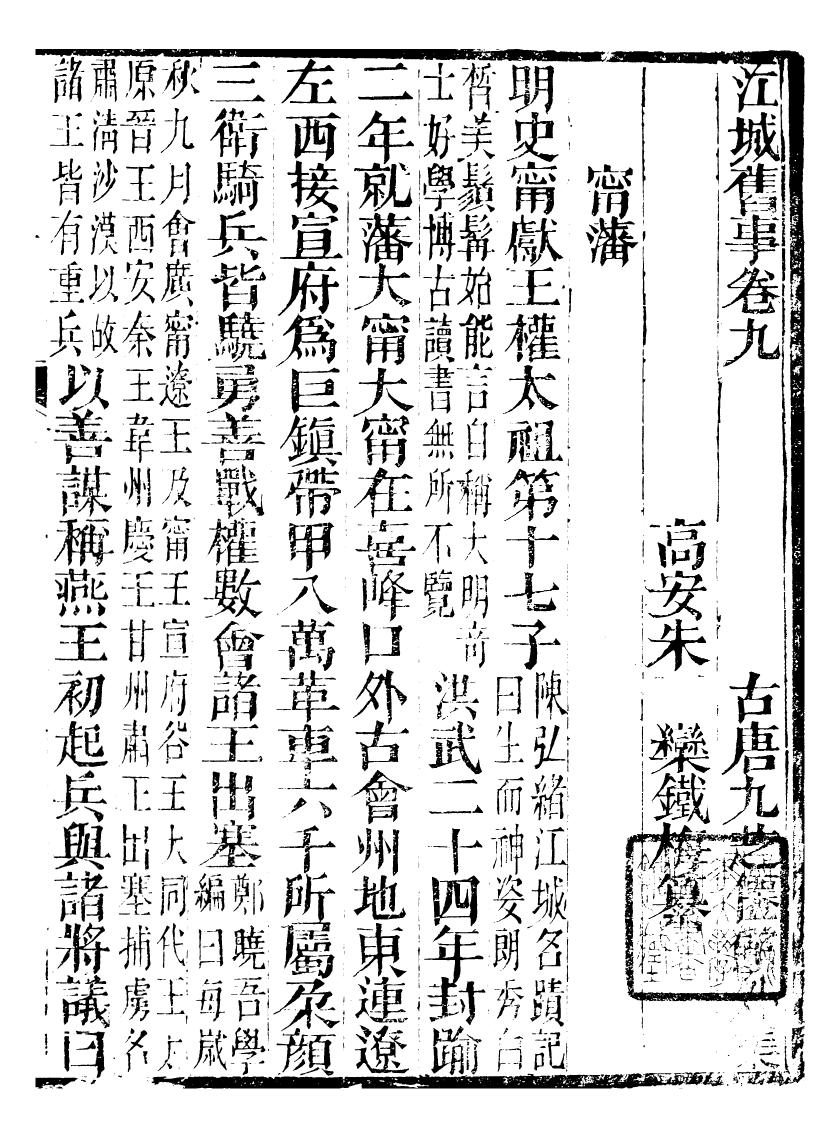 江城舊事卷九
古唐九芝僊
高安朱　欒鐵梅纂
甯藩
明史甯獻王權太祖第十七子陳弘緒江城名蹟記
曰生而神姿朗秀白
皙美鬚髯始能言自稱大明奇
士好學博古讀書無所不覽洪武二十四年封踰
二年就藩大甯大甯在喜峰口外古會州地東連遼
左西接宣府爲巨鎮帶甲八萬革車六千所屬朶顏
三衛騎兵皆驍勇善戰權數會諸王出塞鄭曉吾學
編曰每歲
秋九月會廣甯遼王及甯王宣府谷王大同代王太
原晉王西安秦王韋州慶王甘州肅王出塞捕虜名
肅清沙漠以故
諸王皆有重兵以善謀稱燕王初起兵與諸將議曰